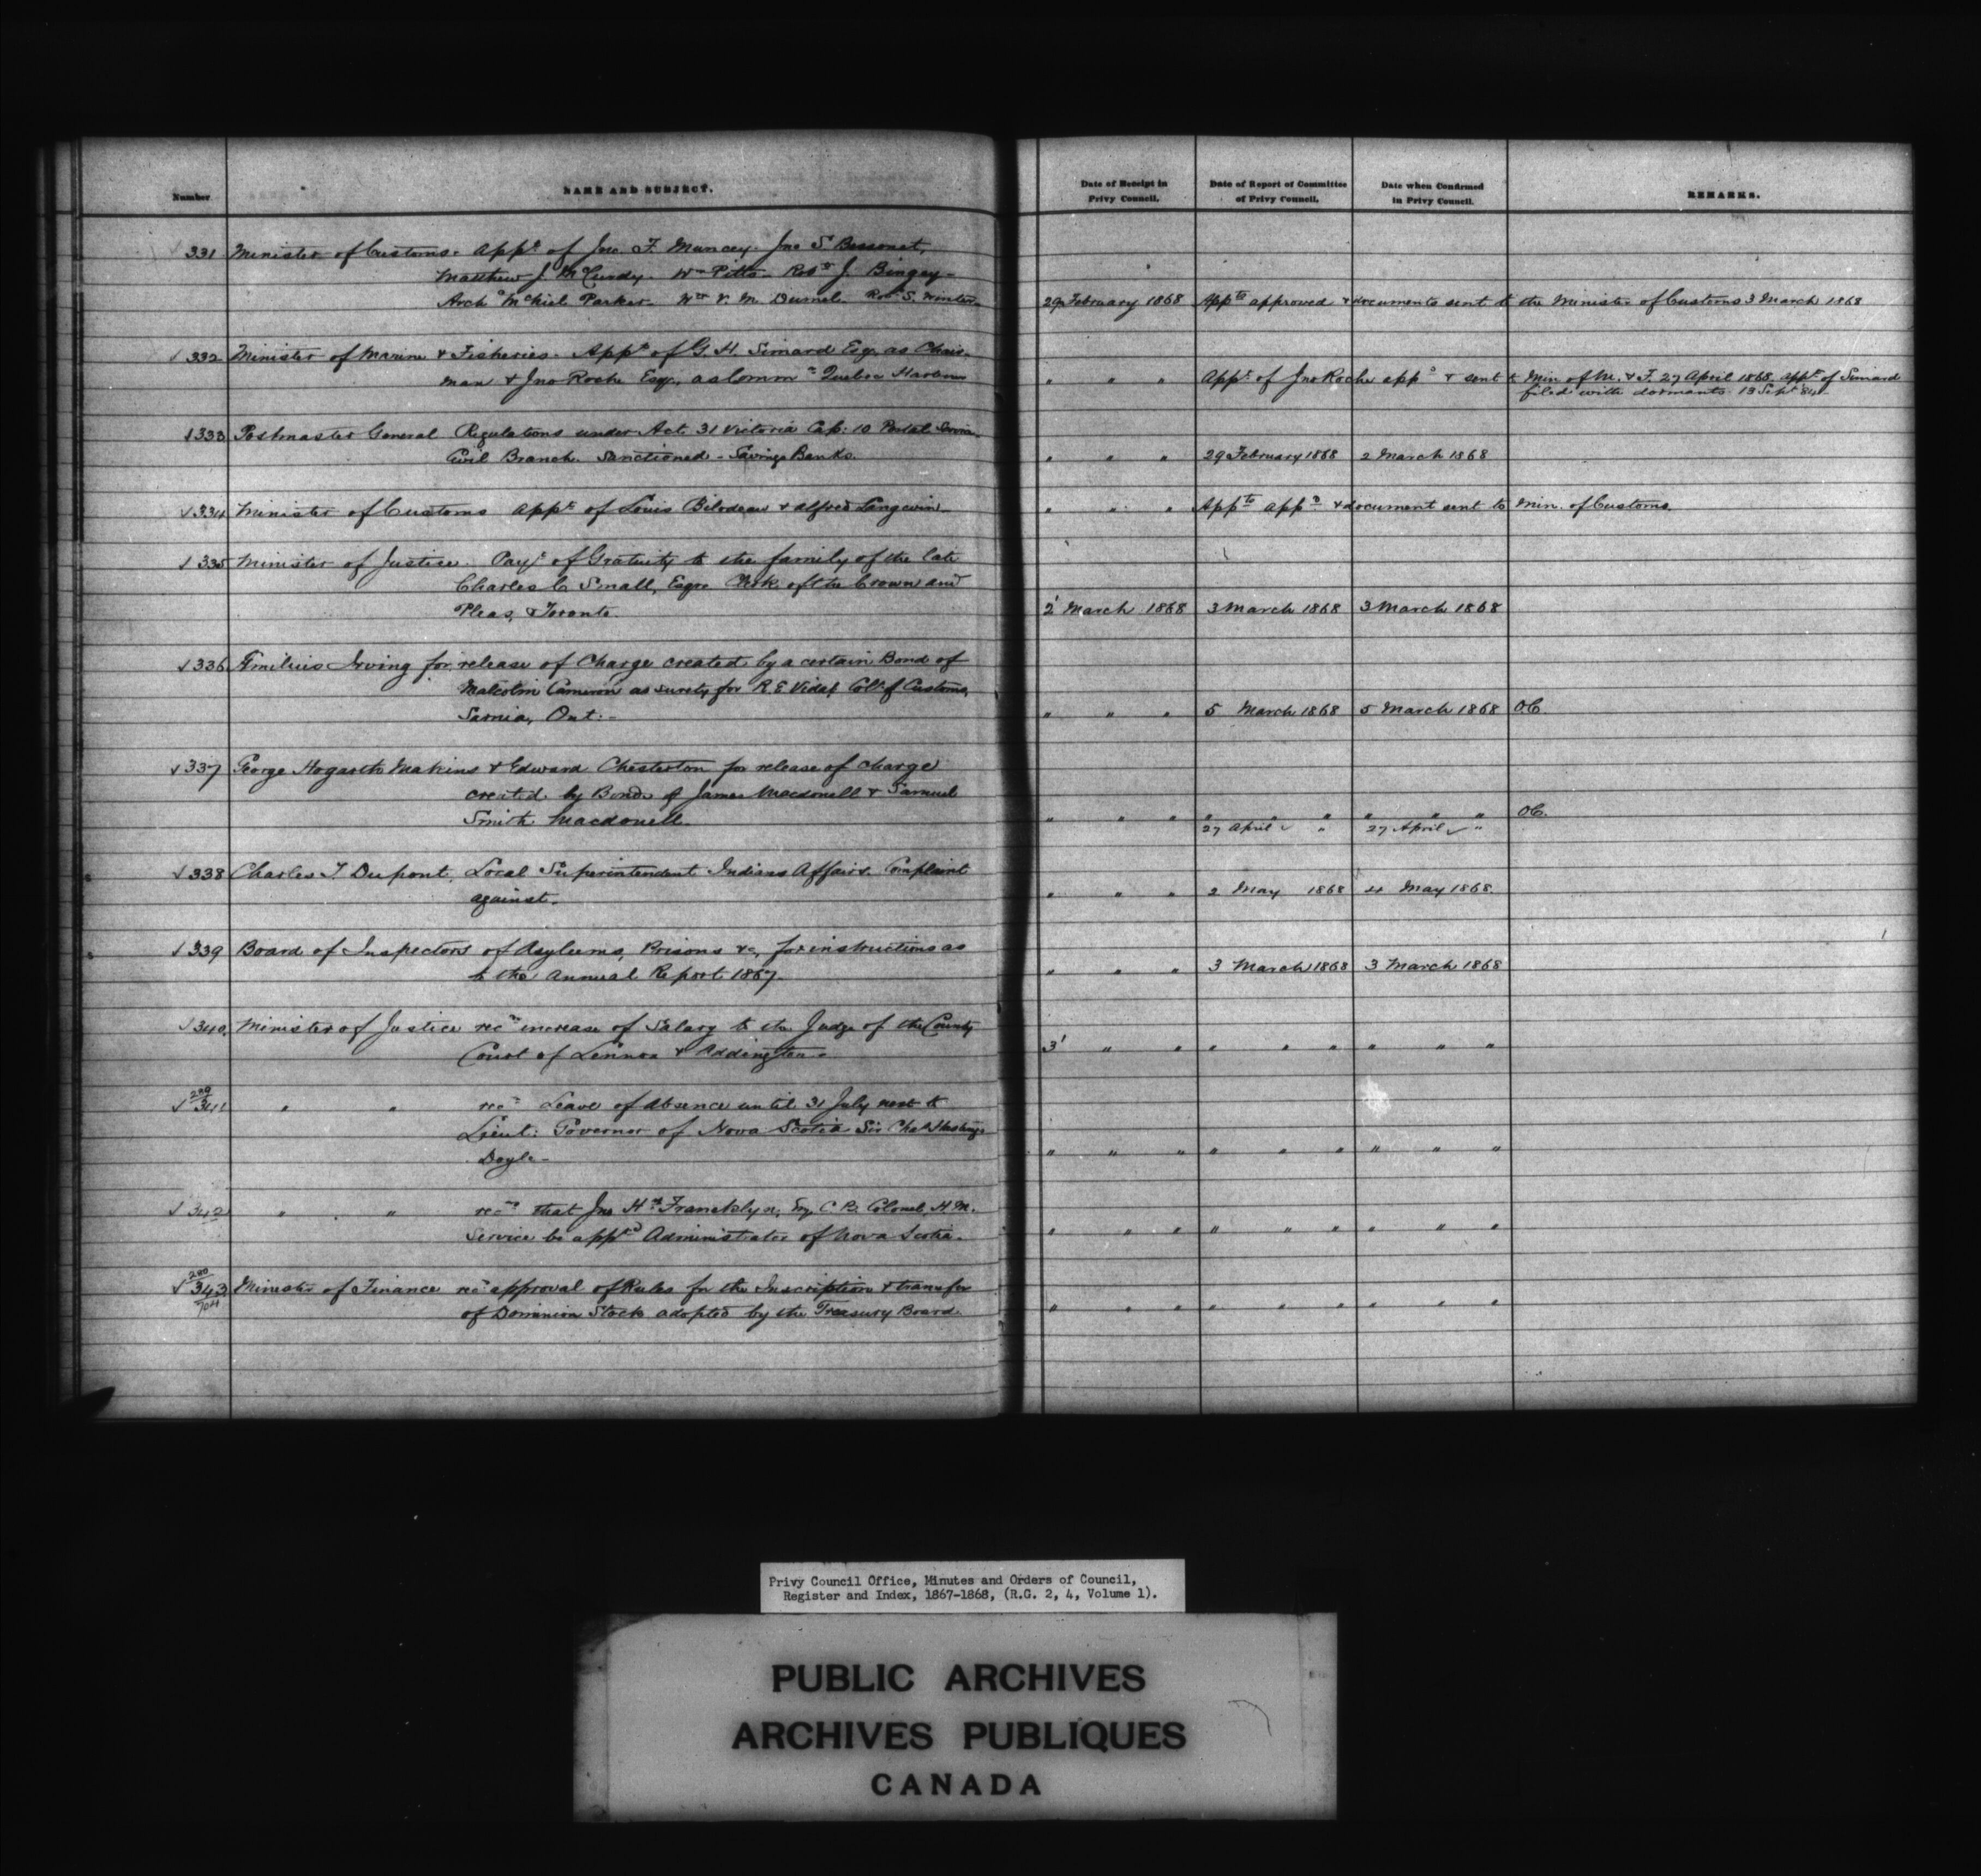 Number
NAME AND SUBJECT.
Date of Receipt in Privy Council.
Date of Report of Committee of Privy Council.
Date when Confirmed in Privy Council.
REMARKS.
331 Minister of Customs. Appt of Jno. F. Muncey. Jno S Bessonet,
Matthew J. McCurdy. Wm Pitts Robt J. Bingay
Archd McKiel Parker. Wm V. M. Robt S. Winter 29 February 1868 Appts approved & documents sent to the Minister of Customs 3 March 1868
332 Minister of Marine & Fisheries. Appt of G. H. Simard Esq. as Chair-
man & Jno Roche Esq., as Commr Quebec Harbour " " " Appt of Jno Roche appd & sent to Min of M. & F. 27 April 1868. appt of Simard
filed with dormants 13 Sept 84
333 Postmaster General Regulations under Act 31 Victoria Cap: 10 Postal Service
Civil Branch. Sanctioned - Savings Banks. " " " 29 February 1868 2 March 1868
334 Minister of Customs appt of Louis Bilodeau & Alfred Langevin " " " Appts appd & document sent to Min. of Customs.
335 Minister of Justice. Payt of Gratuity to the family of the late
Charles C Small, Esqre Clerk of the Crown and
Pleas, Toronto. 2 March 1868 3 March 1868 3 March 1868
336 Æmilius Irving for release of Charge created by a certain Bond of
Malcolm Cameron as surety for R E Vidal Colr of Customs,
Sarnia, Ont. - " " " 5 March 1868 5 March 1868 OC.
337 George Hogarth Makins & Edward Chesterton for release of charge
created by Bonds of James Macdonell & Samuel
Smith Macdonell. " " " " " " " " " OC.
27 April " 27 April "
338 Charles T. Dupont, Local Superintendent Indian Affairs. Complaint
against. " " " 2 May 1868 4 May 1868.
339 Board of Inspectors of Asylums, Prisons &c, for instructions as
to the Annual Report 1867. " " " 3 March 1868 3 March 1868
340 Minister of Justice recm increase of Salary to the Judge of the County
Court of Lennox & Addington. 3 " " " " " " " "
341 " " recm Leave of absence until 31 July next to
Lieut: Governor of Nova Scotia Sir Chas Hastings
Doyle - " " " " " " " " "
342 " " recm that Jno Francklyn, Esq. C.B. Colonel, H M.
Service be apptd Administrator of Nova Scotia. " " " " " " " " "
200
343 Minister of Finance recm approval of Rules for the Inscription & transfer
of Dominion Stock adopted by the Treasury Board. " " " " " " " " "
Privy Council Office, Minutes and Orders of Council,
Register and Index, 1867-1868, (R.G. 2, 4, Volume 1).
PUBLIC ARCHIVES
ARCHIVES PUBLIQUES
CANADA